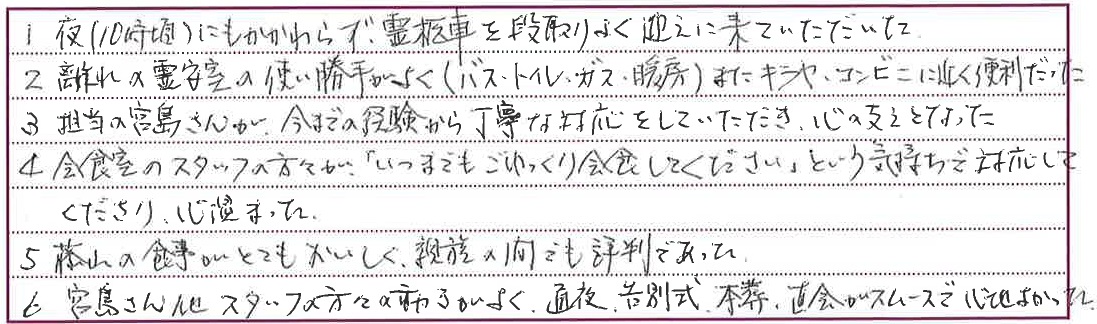 1 夜(10時頃)にもかかわらず、霊柩車を段取りよく迎えに来ていただいた
2 離れの霊安室の使い勝手がよく(バス・トイレ・ガス・暖房)またキラヤ、コンビニに近く便利だった
3 担当の宮島さんが、今までの経験から丁寧な対応をしていただき、心の支えとなった
4 会食室のスタッフの方々が、「いつまでもごゆっくり会食してください」という気持ちで対応して
くださり、心温まった。
5 藤山の食事がとてもおいしく、親族の間でも評判であった
6 宮島さん他スタッフの方々の がよく、通夜、告別式、本葬、直会がスムースで心地よかった。